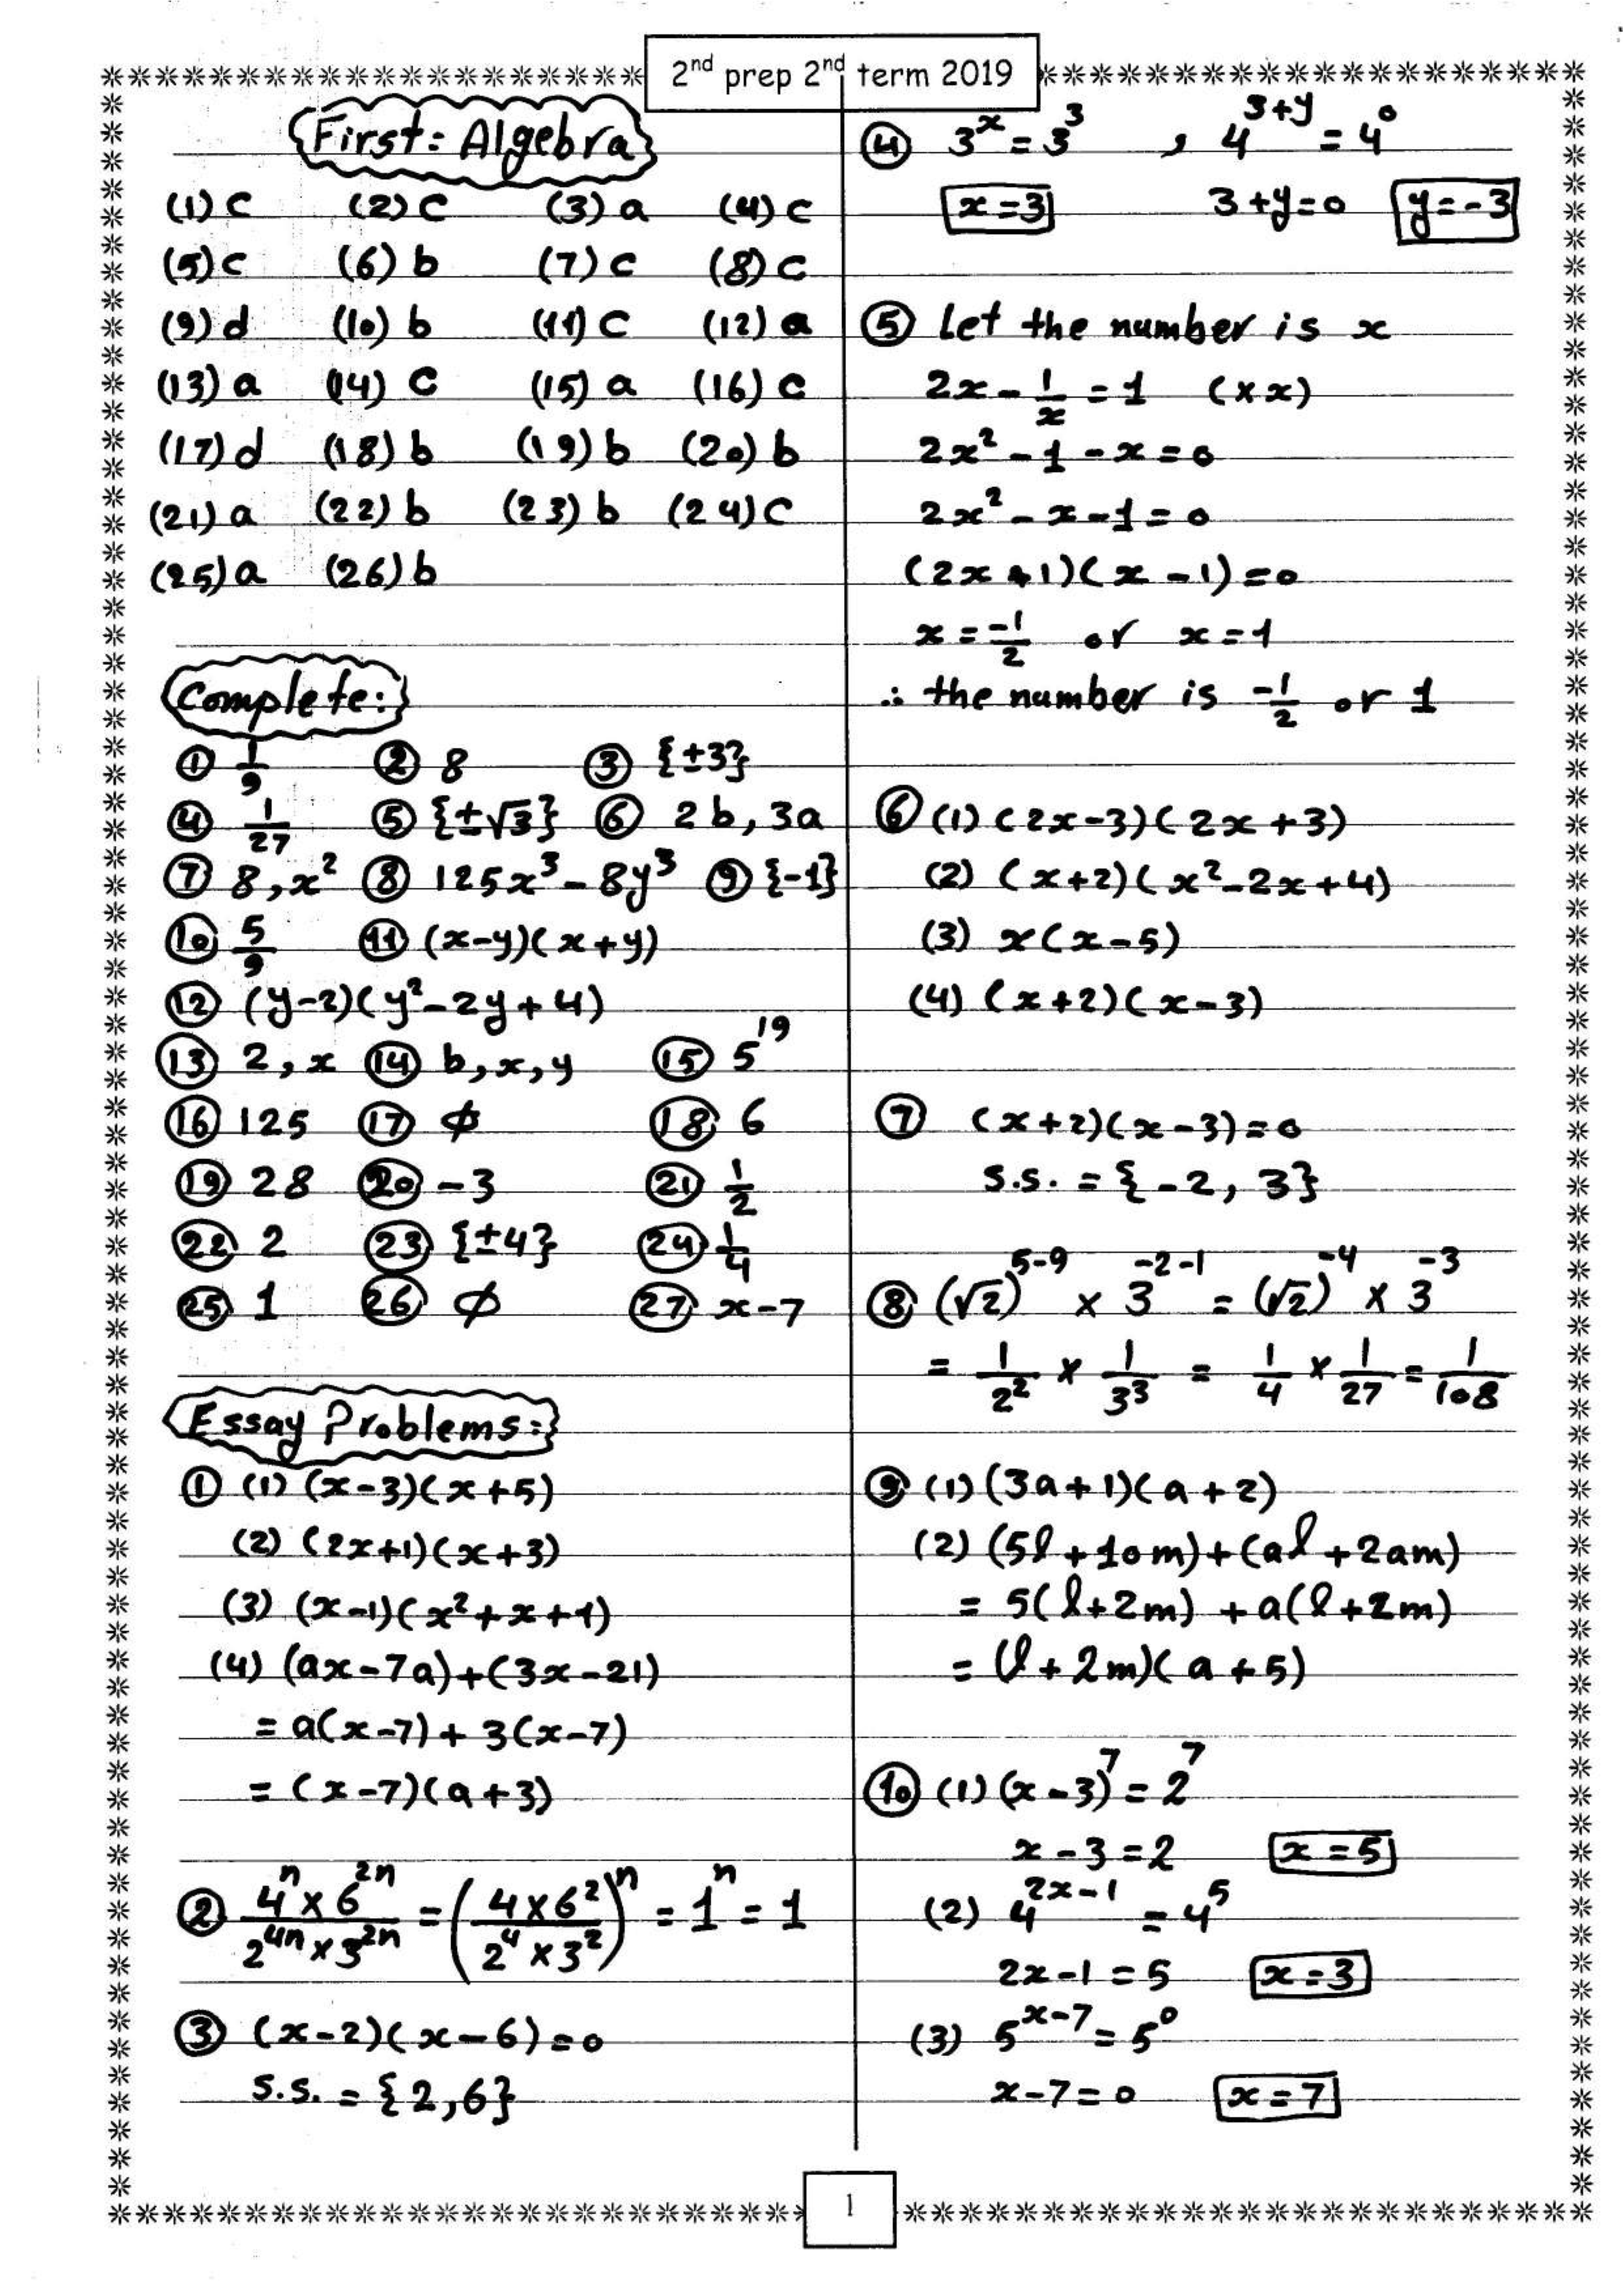 2nd prep 2nd term 2019
First: Algebra
(1) c (2) c (3) a (4) c
(5) c (6) b (7) c (8) c
(9) d (10) b (11) c (12) a
(13) a (14) c (15) a (16) c
(17) d (18) b (19) b (20) b
(21) a (22) b (23) b (24) c
(25) a (26) b
Complete:
① 1/9 ② 8 ③ {±3}
④ 1/27 ⑤ {±√3} ⑥ 2b, 3a
⑦ 8, x² ⑧ 125x³ - 8y³ ⑨ {-1}
⑩ 5/9 ⑪ (x-y)(x+y)
⑫ (y-2)(y²-2y+4)
⑬ 2, x ⑭ b, x, y ⑮ 5¹⁹
⑯ 125 ⑰ ∅ ⑱ 6
⑲ 28 ⑳ -3 ㉑ 1/2
㉒ 2 ㉓ {±4} ㉔ 1/4
㉕ 1 ㉖ ∅ ㉗ x-7
Essay Problems:
① (1) (x-3)(x+5)
(2) (2x+1)(x+3)
(3) (x-1)(x²+x+1)
(4) (ax-7a)+(3x-21)
= a(x-7)+3(x-7)
= (x-7)(a+3)
② (4^n × 6^2n)/(2^4n × 3^2n) = ((4×6²)/(2⁴×3²))^n = 1^n = 1
③ (x-2)(x-6)=0
S.S. = {2,6}
④ 3^x = 3³ , 4^(3+y) = 4⁰
x=3 3+y=0 y=-3
⑤ Let the number is x
2x - 1/x = 1 (×x)
2x² - 1 - x = 0
2x² - x - 1 = 0
(2x+1)(x-1)=0
x = -1/2 or x = 1
∴ the number is -1/2 or 1
⑥ (1) (2x-3)(2x+3)
(2) (x+2)(x²-2x+4)
(3) x(x-5)
(4) (x+2)(x-3)
⑦ (x+2)(x-3)=0
S.S. = {-2, 3}
⑧ (√2)^(5-9) × 3^(-2-1) = (√2)^-4 × 3^-3
= 1/2² × 1/3³ = 1/4 × 1/27 = 1/108
⑨ (1) (3a+1)(a+2)
(2) (5l+10m)+(al+2am)
= 5(l+2m)+a(l+2m)
= (l+2m)(a+5)
⑩ (1) (x-3)⁷ = 2⁷
x-3=2 x=5
(2) 4^(2x-1) = 4⁵
2x-1=5 x=3
(3) 5^(x-7) = 5⁰
x-7=0 x=7
1